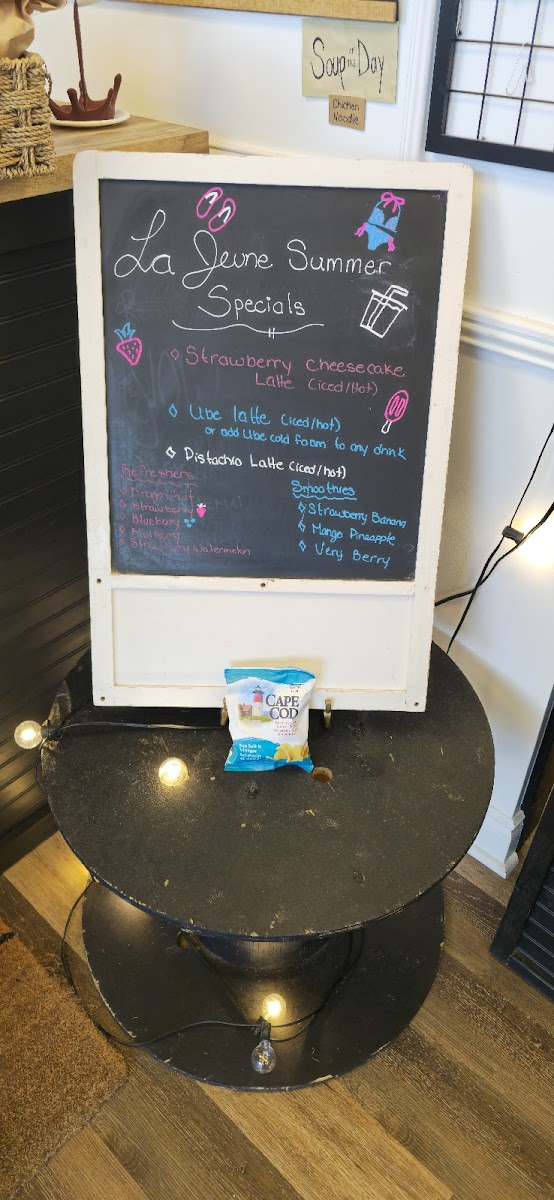 Soup of the Day
Chicken
Noodle
La Jeune Summer
Specials
Strawberry Cheesecake
Latte (iced/Hot)
Ube latte (iced/hot)
or add Ube cold foam to any drink
Pistachio Latte (iced/hot)
Refreshers
Dragonfruit
Strawberry
Blueberry
Strawberry Watermelon
Smoothies
Strawberry Banana
Mango Pineapple
Very Berry
CAPE
COD
Sea Salt &
Vinegar